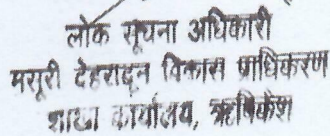 लोक सूचना अधिकारी
मसूरी देहरादून विकास प्राधिकरण
शाखा कार्यालय, ऋषिकेश